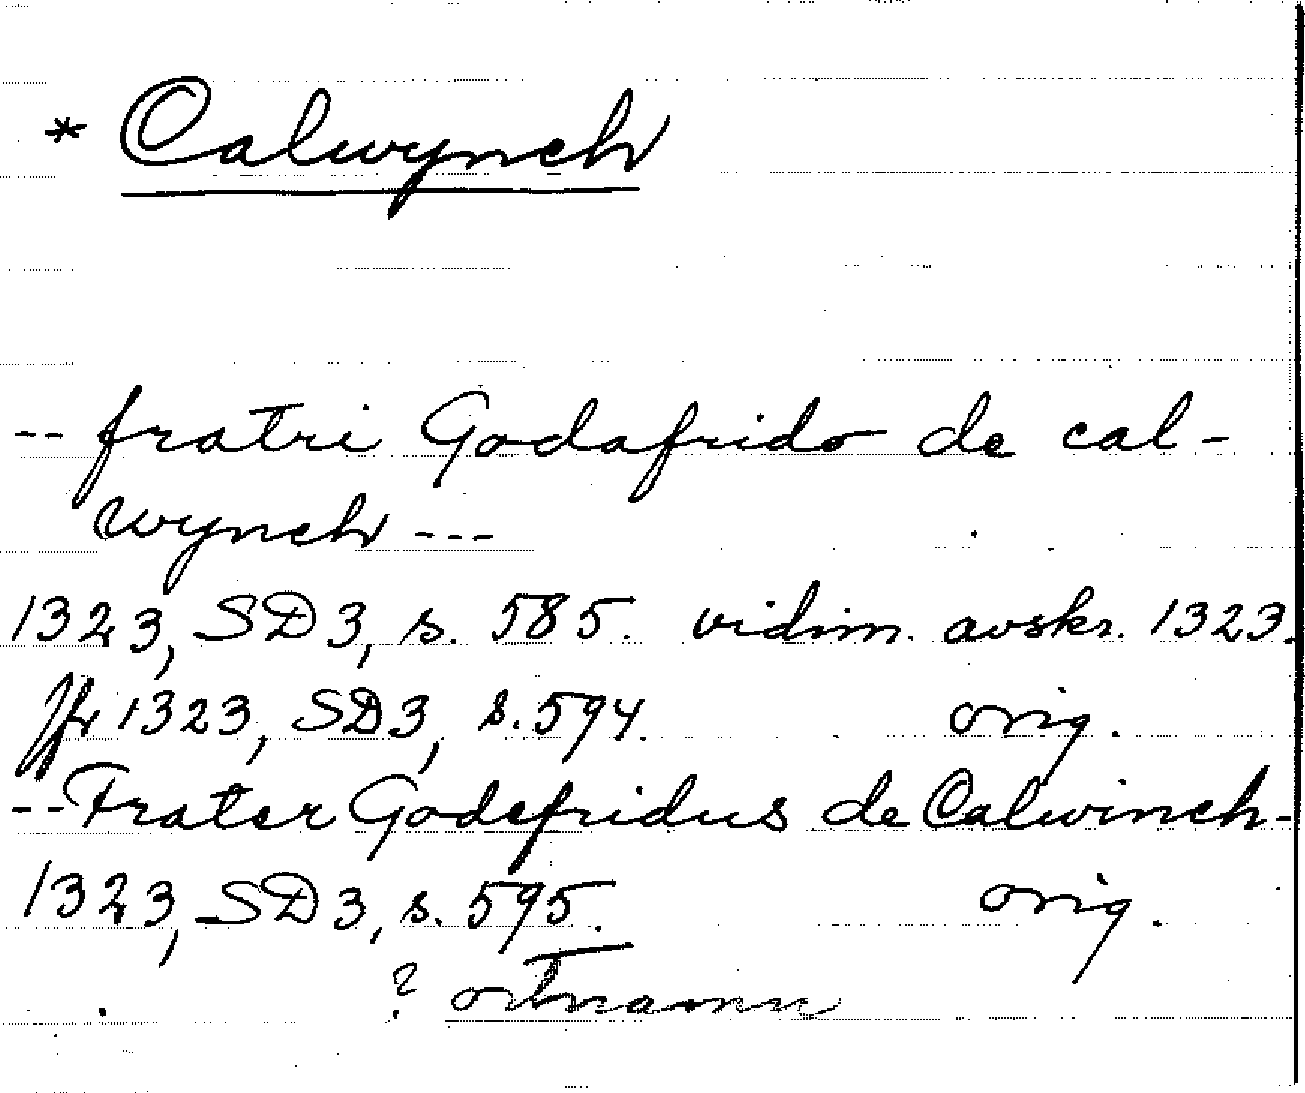 * Calwynch
-- fratri Godafrido de cal-
wynch ---
1323, SD 3, s. 585. vidim. avskr. 1323.
Jfr 1323, SD 3, s. 594. orig.
-- Frater Godefridus de Calwinch-
1323, SD 3, s. 595. orig.
? ortnamn